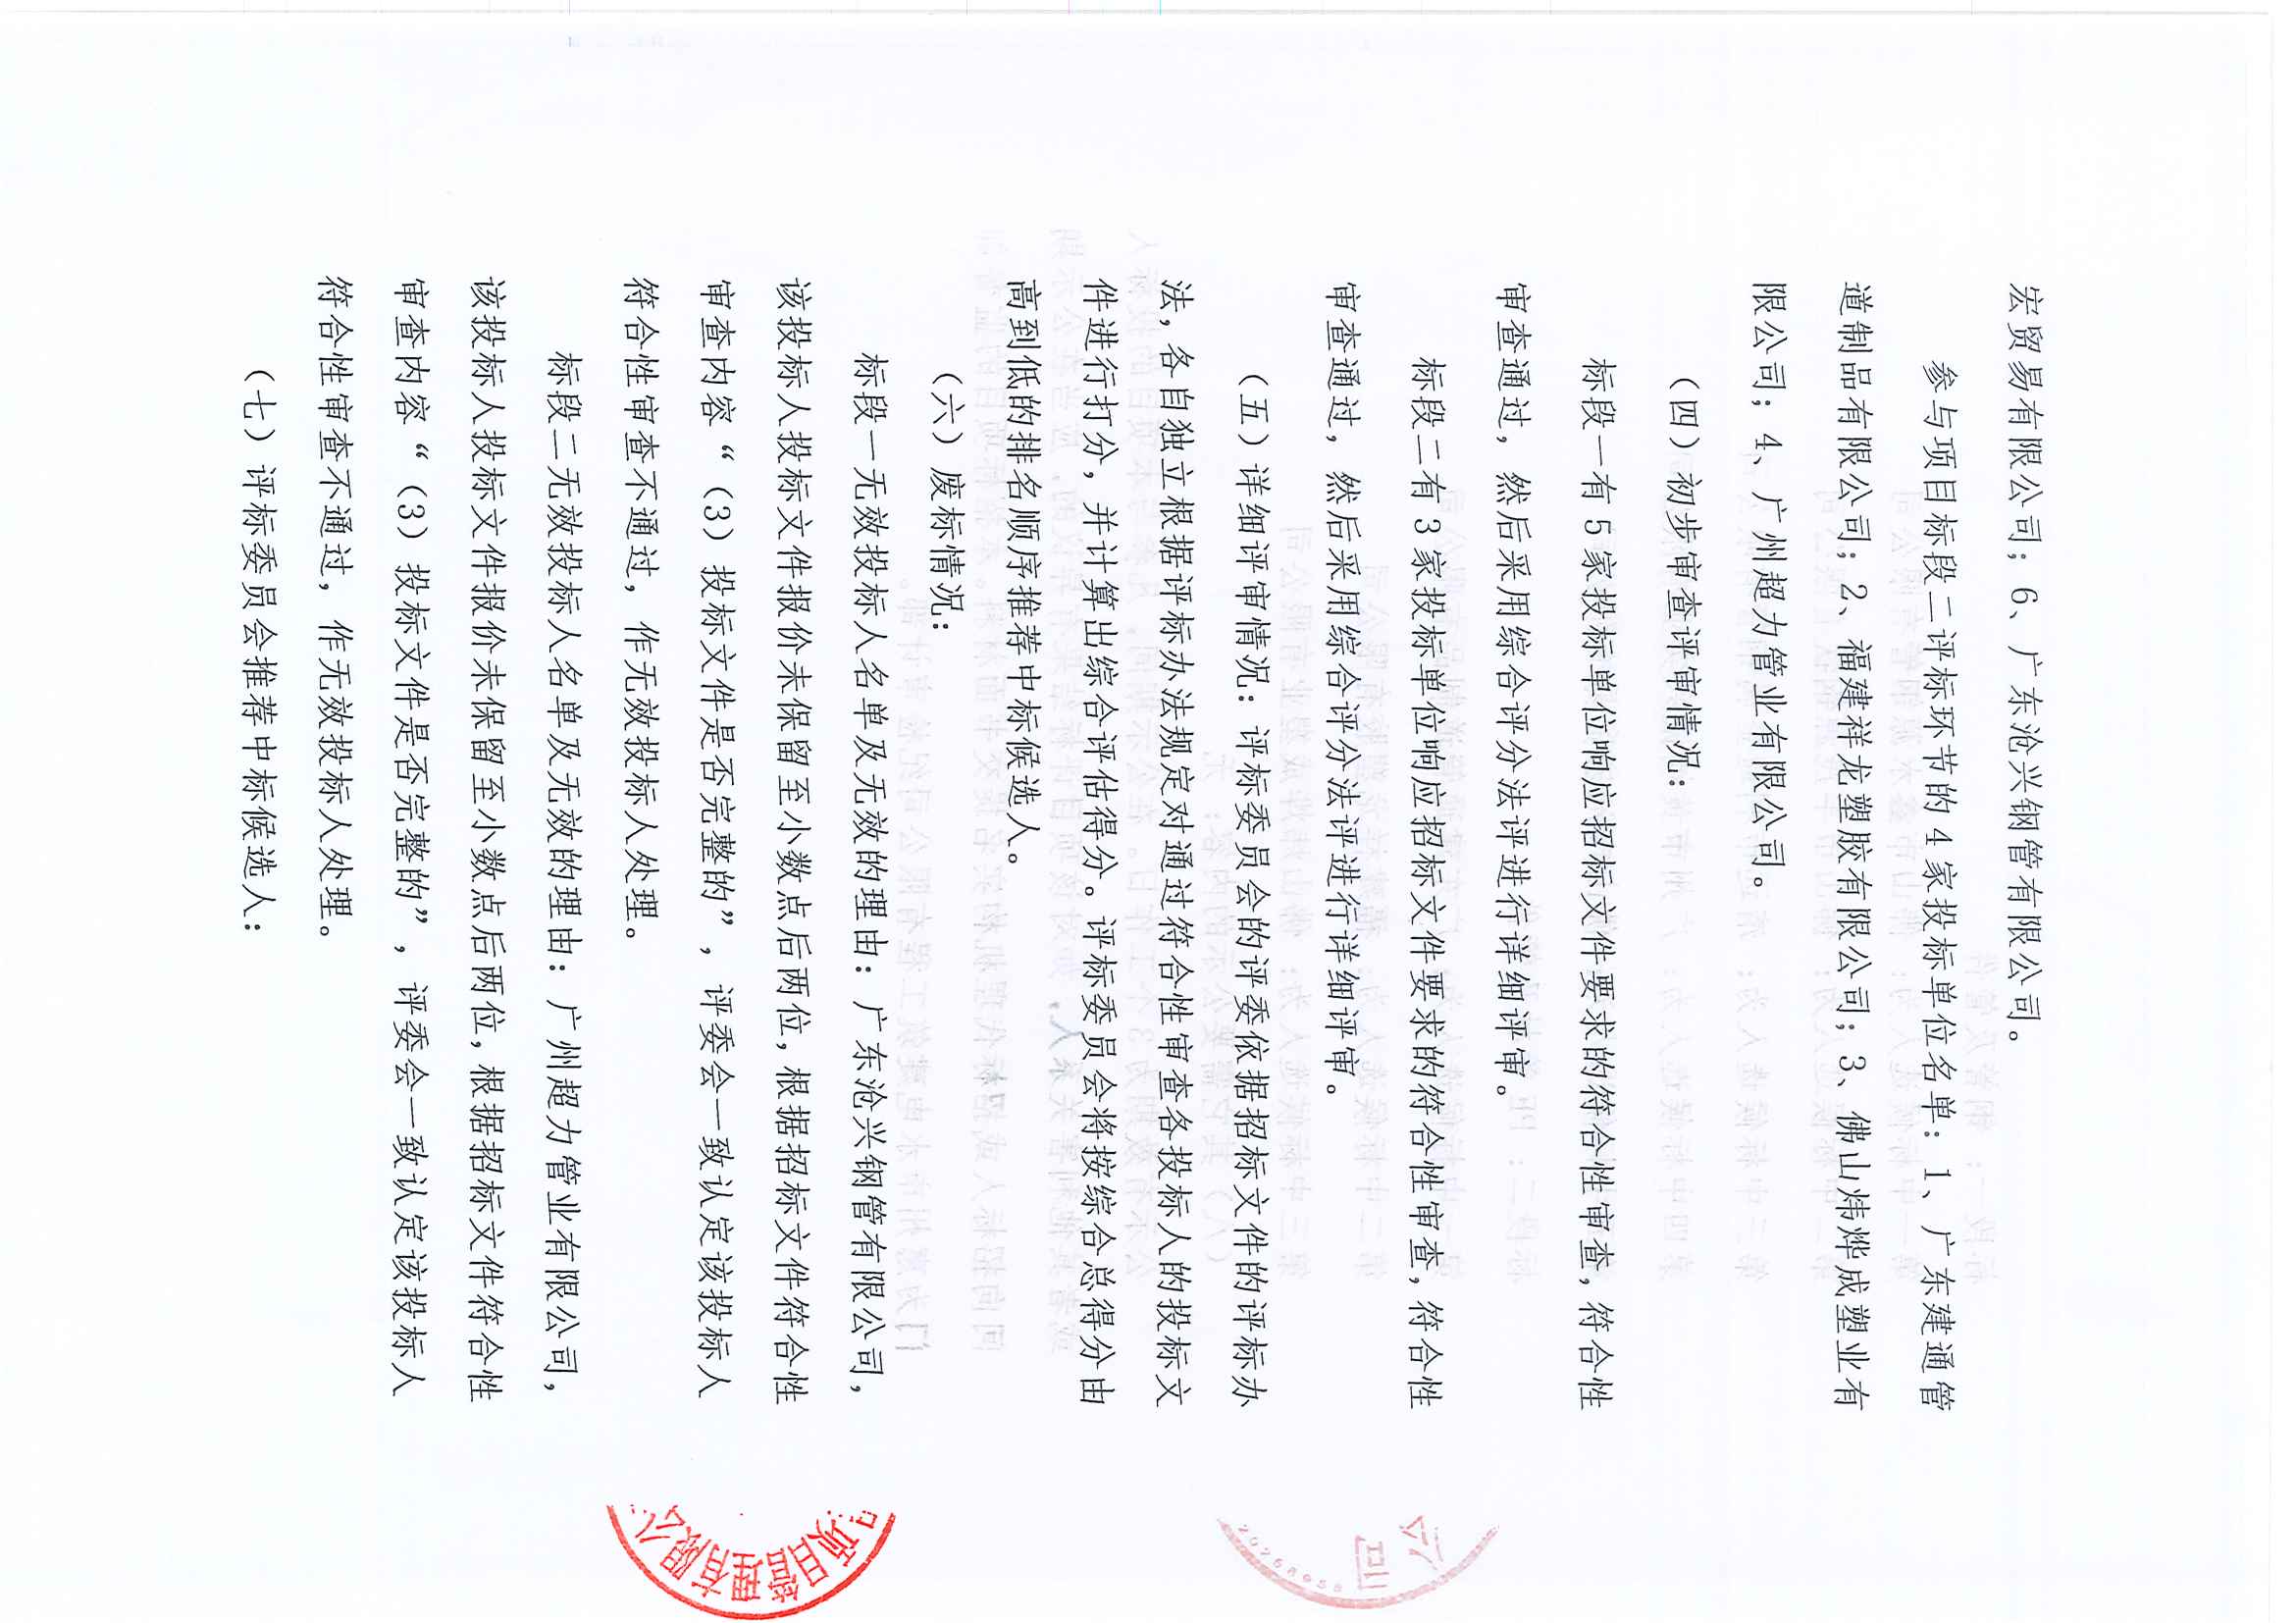 宏贸易有限公司；6、广东沧兴钢管有限公司。
参与项目标段二评标环节的4家投标单位名单：1、广东建通管
道制品有限公司；2、福建祥龙塑胶有限公司；3、佛山炜烨成塑业有
限公司；4、广州超力管业有限公司。
（四）初步审查评审情况：
标段一有5家投标单位响应招标文件要求的符合性审查，符合性
审查通过，然后采用综合评分法评进行详细评审。
标段二有3家投标单位响应招标文件要求的符合性审查，符合性
审查通过，然后采用综合评分法评进行详细评审。
（五）详细评审情况：评标委员会的评委依据招标文件的评标办
法，各自独立根据评标办法规定对通过符合性审查各投标人的投标文
件进行打分，并计算出综合评估得分。评标委员会将按综合总得分由
高到低的排名顺序推荐中标候选人。
（六）废标情况：
标段一无效投标人名单及无效的理由：广东沧兴钢管有限公司，
该投标人投标文件报价未保留至小数点后两位，根据招标文件符合性
审查内容“（3）投标文件是否完整的”，评委会一致认定该投标人
符合性审查不通过，作无效投标人处理。
标段二无效投标人名单及无效的理由：广州超力管业有限公司，
该投标人投标文件报价未保留至小数点后两位，根据招标文件符合性
审查内容“（3）投标文件是否完整的”，评委会一致认定该投标人
符合性审查不通过，作无效投标人处理。
（七）评标委员会推荐中标候选人：
项目管理有限公
公司